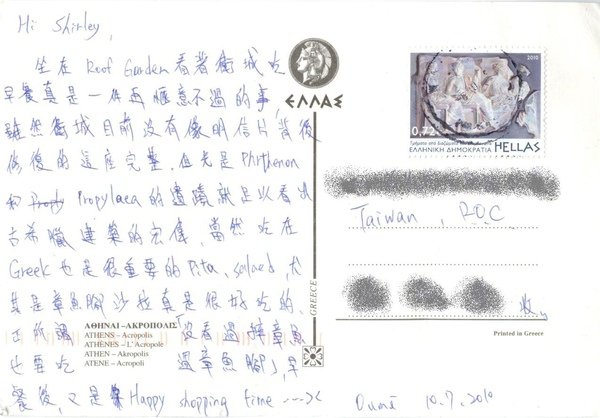 Hi Shirley,
坐在 Roof Garden 看著衛城吃
早餐真是一件再愜意不過的事,
雖然衛城目前沒有像明信片背後
修復的這座完整,但光是 Phrthenon
和 Propylaea 的遺蹟就足以看出
古希臘建築的宏偉,當然吃在
Greek 也是很重要的 Pita, salaed, 尤
其是章魚腳沙拉真是很好吃的,
正所謂「沒看過章魚
也要吃過章魚腳」,早
餐後,又是 Happy shopping time ---><
10.7.2010
ΑΘΗΝΑΙ – ΑΚΡΟΠΟΛΙΣ
ATHENS – Acropolis
ATHÈNES – L' Acropole
ATHEN – Akropolis
ATENE – Acropoli
ΕΛΛΑΣ
GREECE
2010
0,72
ΕΛΛΗΝΙΚΗ ΔΗΜΟΚΡΑΤΙΑ HELLAS
Taiwan, ROC
Printed in Greece